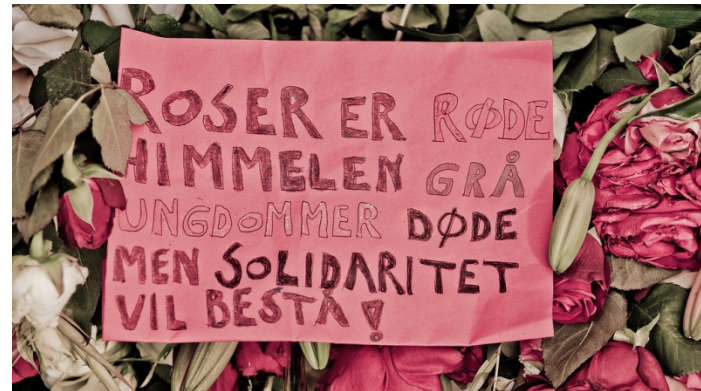 ROSER ER RØDE
HIMMELEN GRÅ
UNGDOMMER DØDE
MEN SOLIDARITET
VIL BESTÅ!